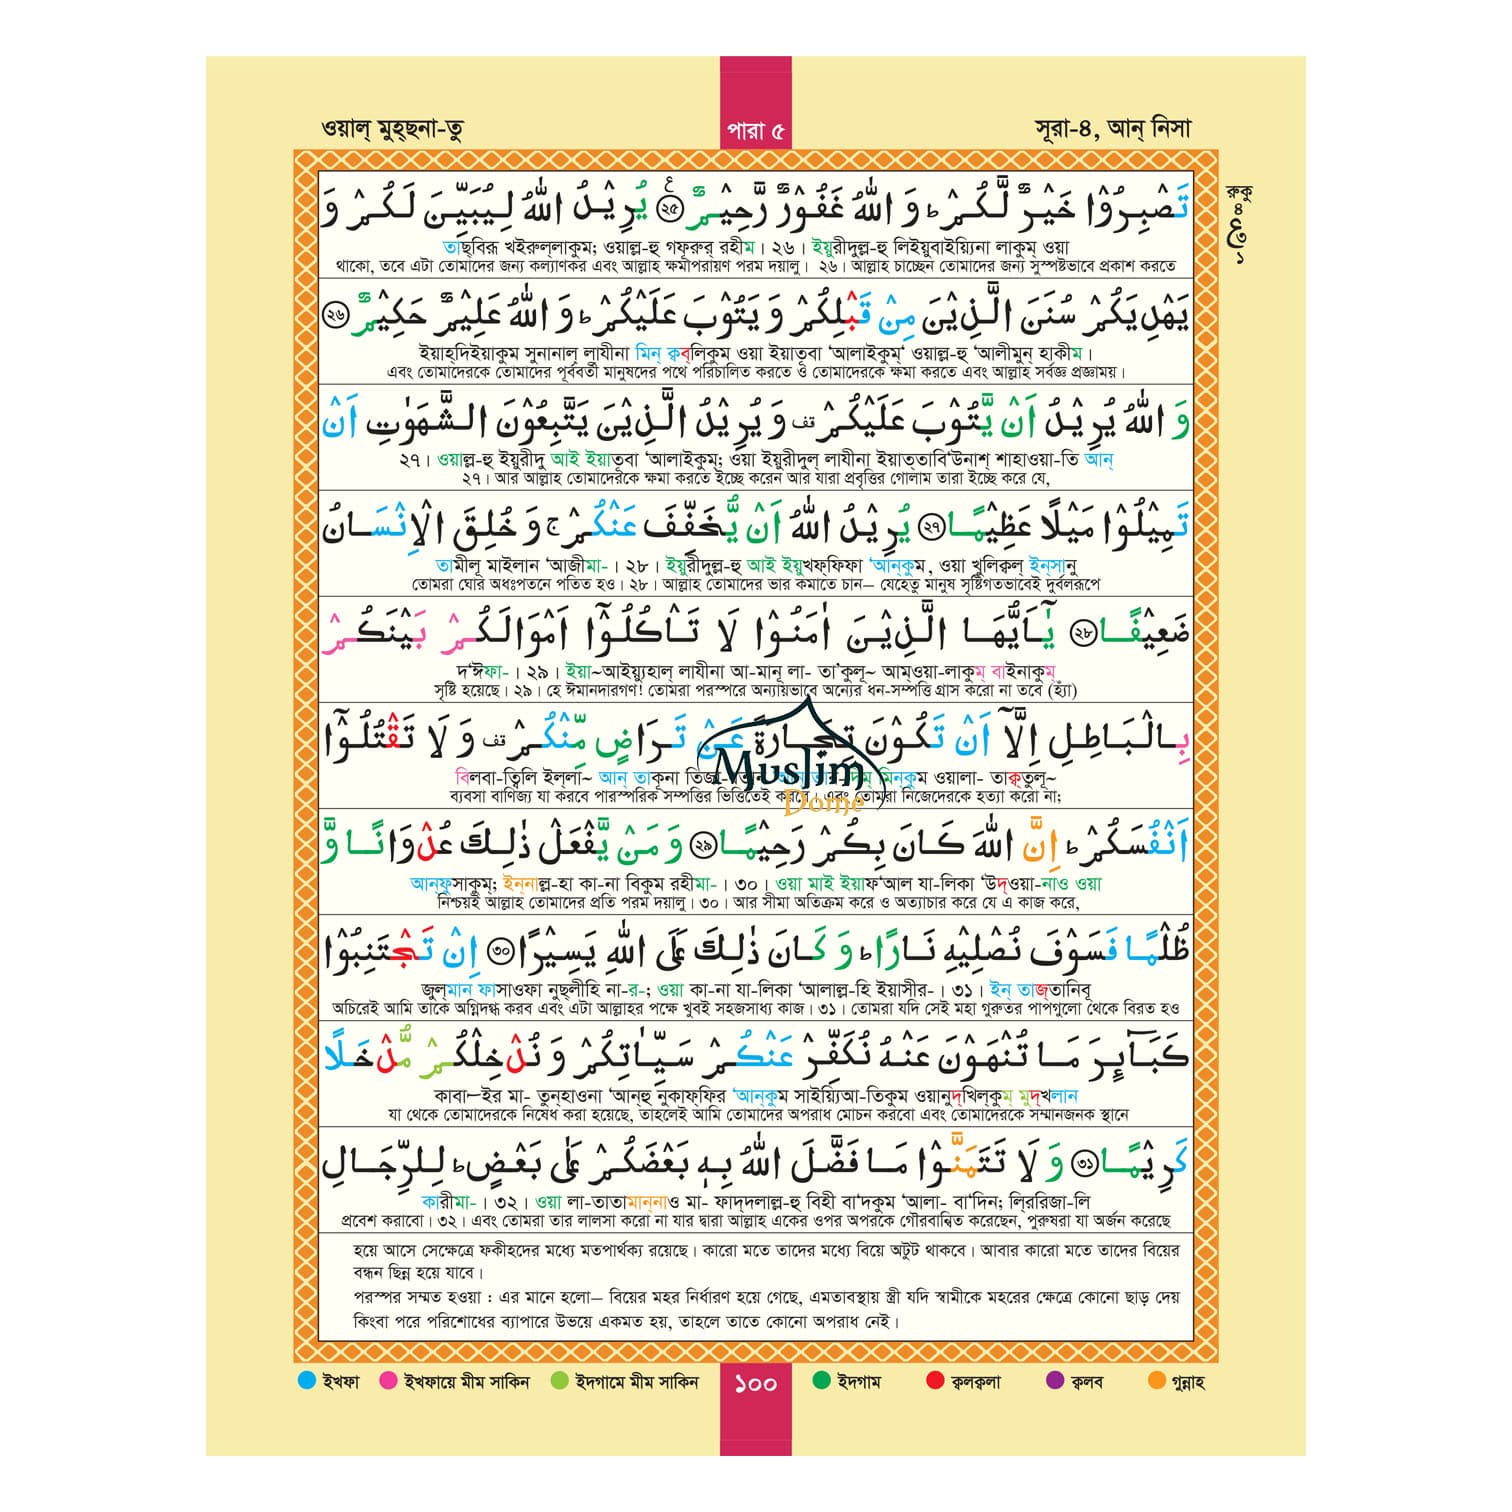 ওয়াল্ মুহ্ছনা-তু
পারা ৫
সূরা-৪, আন্ নিসা
রুকু
৪
ع
১
تَصْبِرُوْا خَيْرٌ لَّكُمْ ؕ وَ اللّٰهُ غَفُوْرٌ رَّحِيْمٌ ۟ع ২৫ يُرِيْدُ اللّٰهُ لِيُبَيِّنَ لَكُمْ وَ
তাছ্‌বিরূ খইরুল্‌লাকুম; ওয়াল্ল-হু গফূরুর্ রহীম। ২৬। ইয়ুরীদুল্ল-হু লিইয়ুবাইয়্যিনা লাকুম্ ওয়া
থাকো, তবে এটা তোমাদের জন্য কল্যাণকর এবং আল্লাহ ক্ষমাপরায়ণ পরম দয়ালু। ২৬। আল্লাহ চাচ্ছেন তোমাদের জন্য সুস্পষ্টভাবে প্রকাশ করতে
يَهْدِيَكُمْ سُنَنَ الَّذِيْنَ مِنْ قَبْلِكُمْ وَ يَتُوْبَ عَلَيْكُمْ ؕ وَ اللّٰهُ عَلِيْمٌ حَكِيْمٌ ২৬
ইয়াহ্‌দিইয়াকুম সুনানাল্ লাযীনা মিন্ ক্বব্‌লিকুম ওয়া ইয়াতূবা ‘আলাইকুম্‌‘ ওয়াল্ল-হু ‘আলীমুন্ হাকীম।
এবং তোমাদেরকে তোমাদের পূর্ববর্তী মানুষদের পথে পরিচালিত করতে ও তোমাদেরকে ক্ষমা করতে এবং আল্লাহ সর্বজ্ঞ প্রজ্ঞাময়।
وَ اللّٰهُ يُرِيْدُ اَنْ يَّتُوْبَ عَلَيْكُمْ قف وَ يُرِيْدُ الَّذِيْنَ يَتَّبِعُوْنَ الشَّهَوٰتِ اَنْ
২৭। ওয়াল্ল-হু ইয়ুরীদু আই ইয়াতূবা ‘আলাইকুম; ওয়া ইয়ুরীদুল্ লাযীনা ইয়াত্তাবি‘উনাশ্ শাহাওয়া-তি আন্
২৭। আর আল্লাহ তোমাদেরকে ক্ষমা করতে ইচ্ছে করেন আর যারা প্রবৃত্তির গোলাম তারা ইচ্ছে করে যে,
تَمِيْلُوْا مَيْلًا عَظِيْمًا ২৭ يُرِيْدُ اللّٰهُ اَنْ يُّخَفِّفَ عَنْكُمْ ۚ وَ خُلِقَ الْاِنْسَانُ
তামীলূ মাইলান ‘আজীমা-। ২৮। ইয়ুরীদুল্ল-হু আই ইয়ুখফ্‌ফিফা ‘আন্‌কুম, ওয়া খুলিক্বল্ ইন্‌সানু
তোমরা ঘোর অধঃপতনে পতিত হও। ২৮। আল্লাহ তোমাদের ভার কমাতে চান– যেহেতু মানুষ সৃষ্টিগতভাবেই দুর্বলরূপে
ضَعِيْفًا ২৮ يٰۤاَيُّهَا الَّذِيْنَ اٰمَنُوْا لَا تَاْكُلُوْۤا اَمْوَالَكُمْ بَيْنَكُمْ
দ‘ঈফা-। ২৯। ইয়া~আইয়্যুহাল্ লাযীনা আ-মানূ লা- তা’কুলূ~ আম্‌ওয়া-লাকুম্ বাইনাকুম্
সৃষ্টি হয়েছে। ২৯। হে ঈমানদারগণ! তোমরা পরস্পরে অন্যায়ভাবে অন্যের ধন-সম্পত্তি গ্রাস করো না তবে (হ্যাঁ)
بِالْبَاطِلِ اِلَّاۤ اَنْ تَكُوْنَ تِجَارَةً عَنْ تَرَاضٍ مِّنْكُمْ قف وَ لَا تَقْتُلُوْۤا
বিলবা-ত্বিলি ইল্‌লা~ আন্ তাকূনা ওয়ালা- তাক্ব্‌তুলূ~
ব্যবসা বাণিজ্য যা করবে পারস্পরিক সম্পত্তির ভিত্তিতেই করবে। এবং তোমরা নিজেদেরকে হত্যা করো না;
Muslim
Dome
اَنْفُسَكُمْ ؕ اِنَّ اللّٰهَ كَانَ بِكُمْ رَحِيْمًا ২৯ وَ مَنْ يَّفْعَلْ ذٰلِكَ عُدْوَانًا وَّ
আনফুসাকুম্; ইন্‌নাল্ল-হা কা-না বিকুম রহীমা-। ৩০। ওয়া মাই ইয়াফ‘আল যা-লিকা ‘উদ্‌ওয়া-নাও ওয়া
নিশ্চয়ই আল্লাহ তোমাদের প্রতি পরম দয়ালু। ৩০। আর সীমা অতিক্রম করে ও অত্যাচার করে যে এ কাজ করে,
ظُلْمًا فَسَوْفَ نُصْلِيْهِ نَارًا ؕ وَ كَانَ ذٰلِكَ عَلَى اللّٰهِ يَسِيْرًا ৩০ اِنْ تَجْتَنِبُوْا
জুল্‌মান ফাসাওফা নুছ্‌লীহি না-র-; ওয়া কা-না যা-লিকা ‘আলাল্ল-হি ইয়াসীর-। ৩১। ইন্ তাজ্‌তানিবূ
অচিরেই আমি তাকে অগ্নিদগ্ধ করব এবং এটা আল্লাহর পক্ষে খুবই সহজসাধ্য কাজ। ৩১। তোমরা যদি সেই মহা গুরুতর পাপগুলো থেকে বিরত হও
كَبَآئِرَ مَا تُنْهَوْنَ عَنْهُ نُكَفِّرْ عَنْكُمْ سَيِّاٰتِكُمْ وَ نُدْخِلْكُمْ مُّدْخَلًا
কাবা—ইর মা- তুন্‌হাওনা ‘আন্‌হু নুকাফ্‌ফির ‘আন্‌কুম সাইয়্যিআ-তিকুম ওয়ানুদ্‌খিল্‌কুম্ মুদ্‌খলান
যা থেকে তোমাদেরকে নিষেধ করা হয়েছে, তাহলেই আমি তোমাদের অপরাধ মোচন করবো এবং তোমাদেরকে সম্মানজনক স্থানে
كَرِيْمًا ৩১ وَ لَا تَتَمَنَّوْا مَا فَضَّلَ اللّٰهُ بِهٖ بَعْضَكُمْ عَلٰى بَعْضٍ ؕ لِلرِّجَالِ
কারীমা-। ৩২। ওয়া লা-তাতামান্‌নাও মা- ফাদ্‌দলাল্ল-হু বিহী বা‘দকুম ‘আলা- বা‘দিন; লির্‌রিজা-লি
প্রবেশ করাবো। ৩২। এবং তোমরা তার লালসা করো না যার দ্বারা আল্লাহ একের ওপর অপরকে গৌরবান্বিত করেছেন, পুরুষরা যা অর্জন করেছে
হয়ে আসে সেক্ষেত্রে ফকীহদের মধ্যে মতপার্থক্য রয়েছে। কারো মতে তাদের মধ্যে বিয়ে অটুট থাকবে। আবার কারো মতে তাদের বিয়ের
বন্ধন ছিন্ন হয়ে যাবে।
পরস্পর সম্মত হওয়া : এর মানে হলো– বিয়ের মহর নির্ধারণ হয়ে গেছে, এমতাবস্থায় স্ত্রী যদি স্বামীকে মহরের ক্ষেত্রে কোনো ছাড় দেয়
কিংবা পরে পরিশোধের ব্যাপারে উভয়ে একমত হয়, তাহলে তাতে কোনো অপরাধ নেই।
ইখফা ইখফায়ে মীম সাকিন ইদগামে মীম সাকিন ১০০ ইদগাম ক্বলক্বলা ক্বলব গুন্নাহ